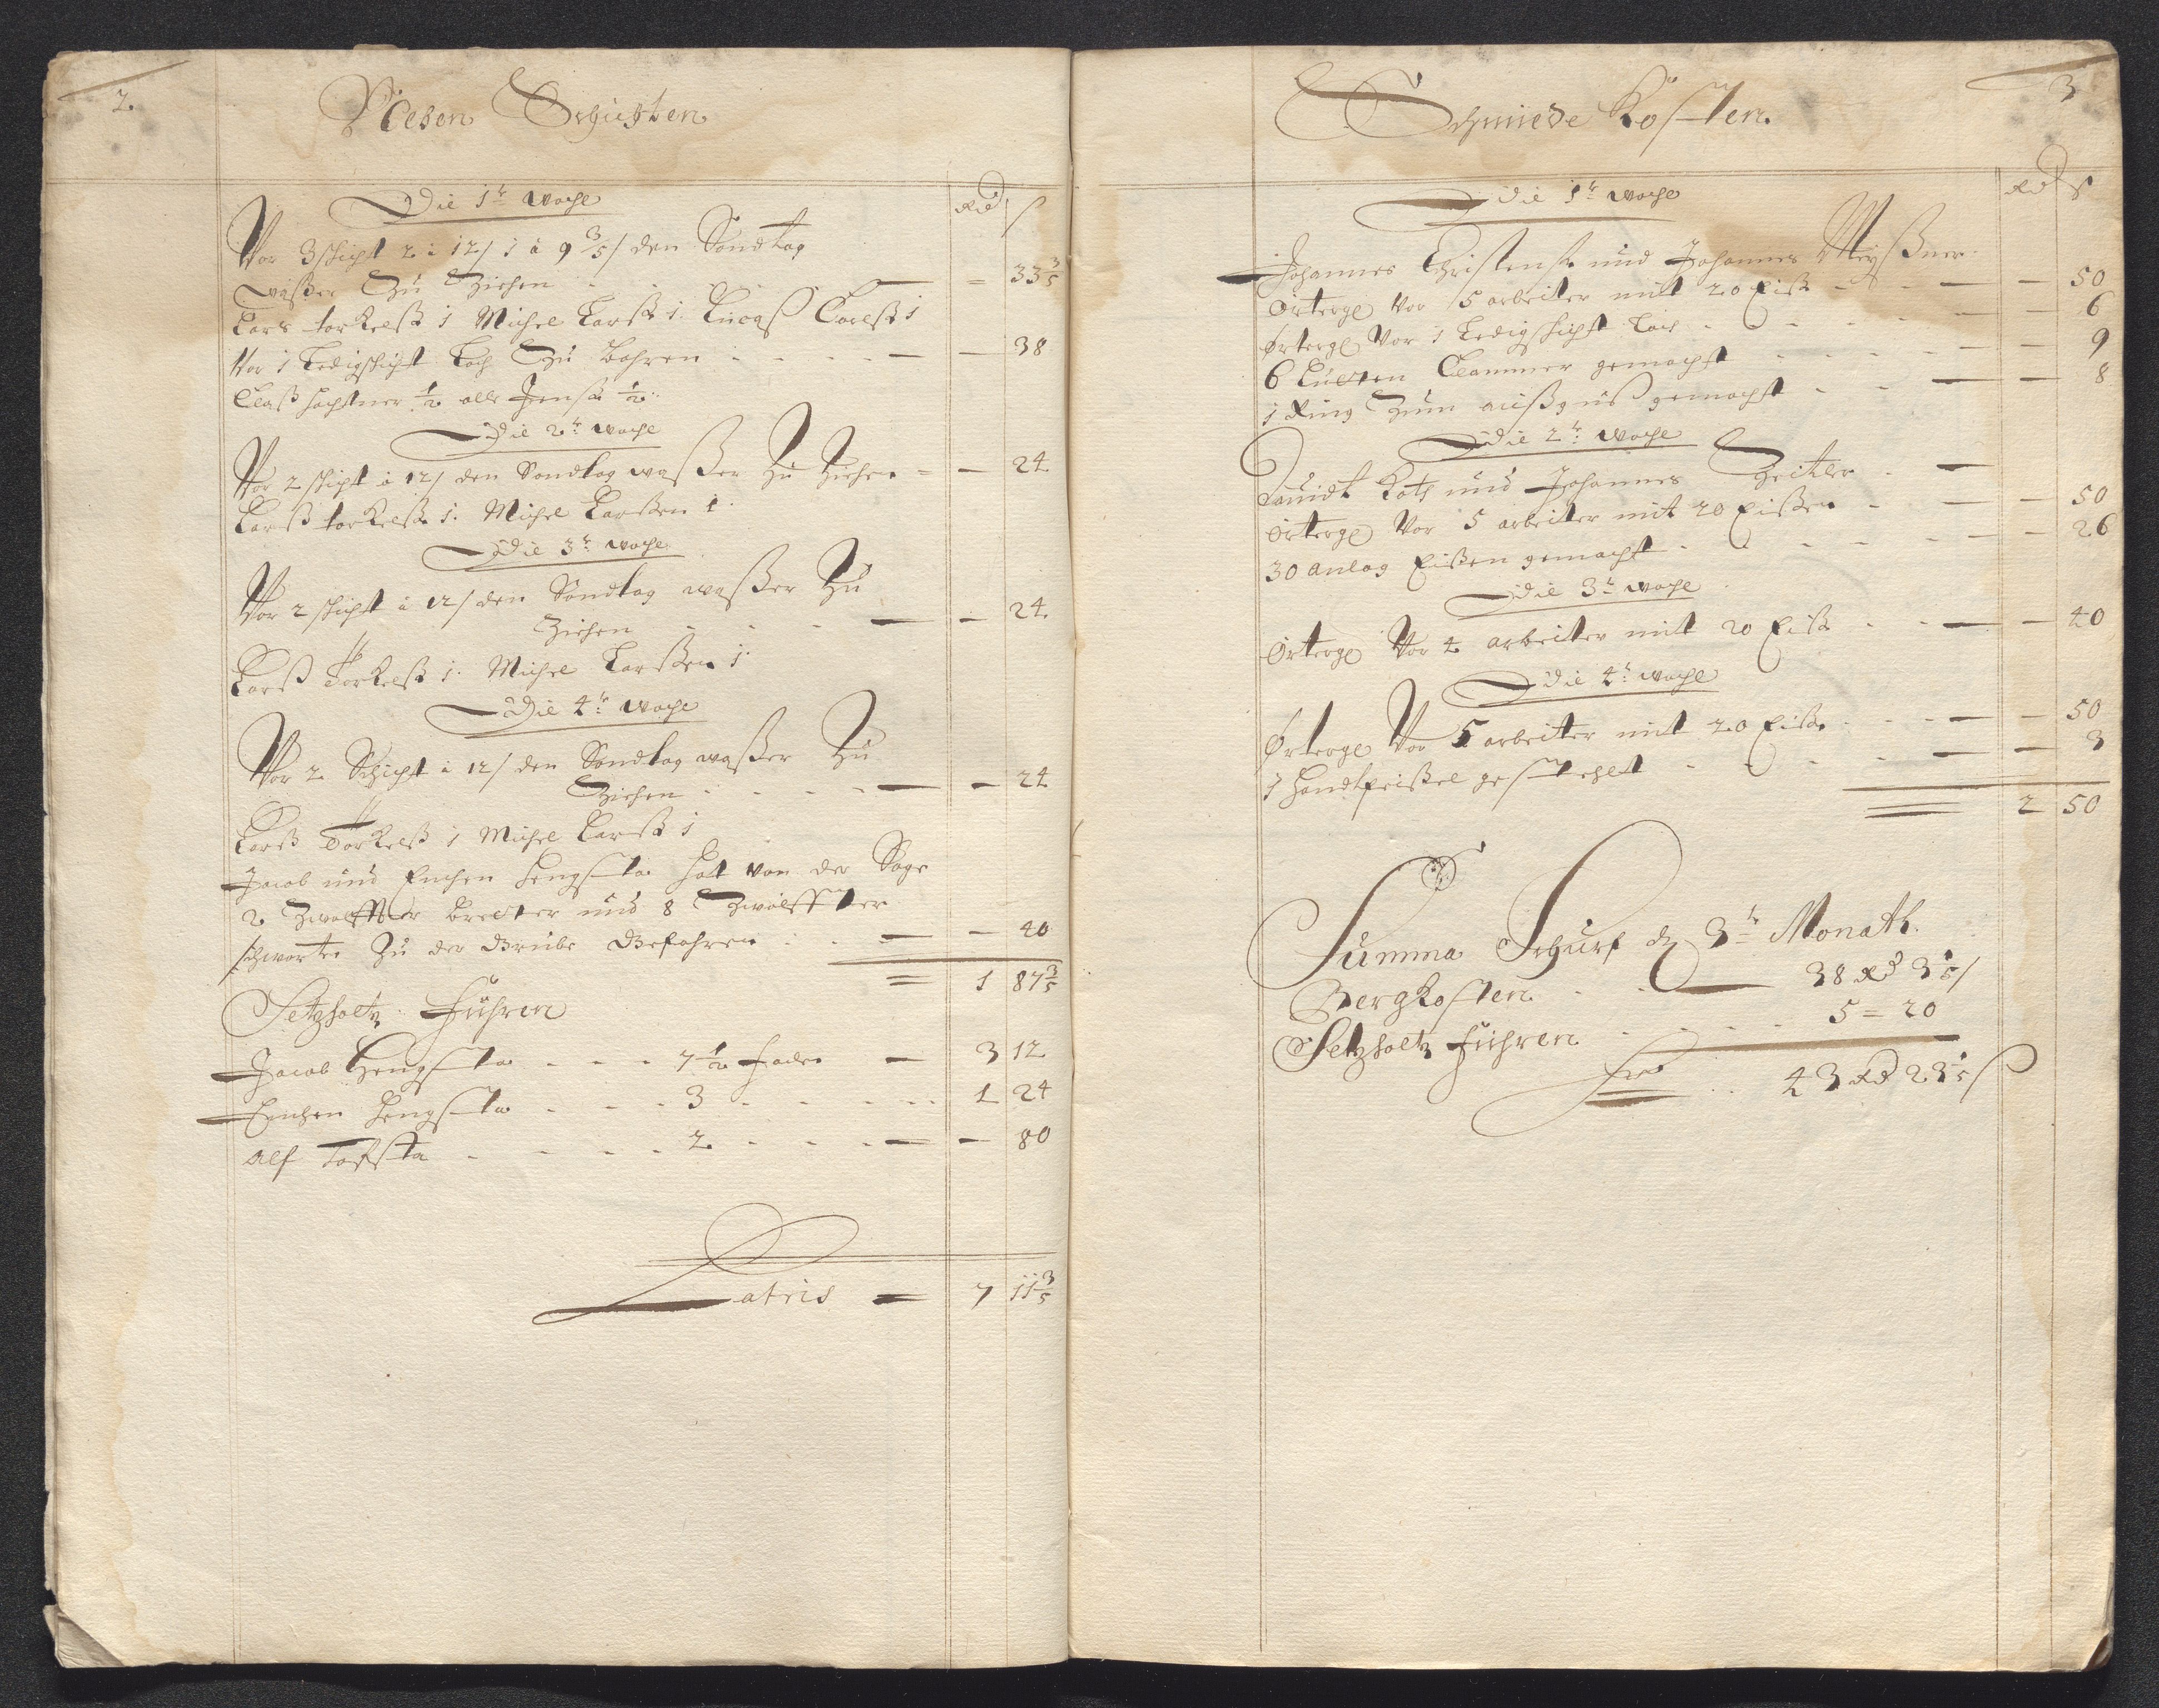 2.
Neben Schichten
Die 1te woche
Rd ß
Vor 3 schicht 2 à 12/ 1 à 9 3/5/ den Sondtag
waßer Zu Ziehen - - - = 33 3/5
Lars torkelß 1 Michel Larß 1. Lucaß Carlß 1
Vor 1 Ledigschicht Loch Zu bohren - - - - 38
Claß 1/2 olle Jenß 1/2
Die 2te woche
Vor 2 schicht à 12/ den Sondtag waßer Zu Ziehen = - 24
Larß torkelß 1. Michel Larßen 1.
Die 3te woche
Vor 2 schicht à 12/ den Sondtag waßer Zu
Ziehen - - - - 24
Larß Torkelß 1. Michel Larßen 1.
Die 4te woche
Vor 2 Schicht à 12/ den Sondtag waßer Zu
Ziehen - - - - 24
Larß Torkelß 1 Michel Larß 1
Jacob und Enchen Hengsta hat von der Sage
2 Zwolffter bretter und 8 Zwolffter
schwarten Zu der Grube Gefahren - - 40
= 1 87 3/5
Setzholtz Führen
Jacob Hengsta - - - 7 1/2 fader - 3 12
Enchen Hengsta - - - 3 - - - 1 24
Alf Tofsta - - - - 2 - - - - 80
Latris = 7 11 3/5
3
Schmiede Kosten
Rd ß
Die 1te woche
Johannes Christenß und Johannes Meyßner
Örterge Vor 5 arbeiter mit 20 Eiß - - - 50
Örterge Vor 1 Ledigschicht Loch - - - 6
6 Clammer gemacht - - - 9
1 Ring Zum außguß gemacht - - - 8
Die 2te woche
Dauidt Koth und Johannes Zeitler
Örterge Vor 5 arbeiter mit 20 Eißen - - - 50
30 anlag Eißen gemacht - - - 26
Die 3te woche
Örterge Vor 4 arbeiter mit 20 Eiß - - - 40
Die 4te woche
Örterge Vor 5 arbeiter mit 20 Eiß - - - 50
1 Handtfeißel gestehlt - - - 3
2 50
Summa Schurf des 3te Monath.
Bergkosten - - 38 Rd 3 1/5/
Setzholtz Führen - - - 5 = 20
43 Rd 23 1/5 ß